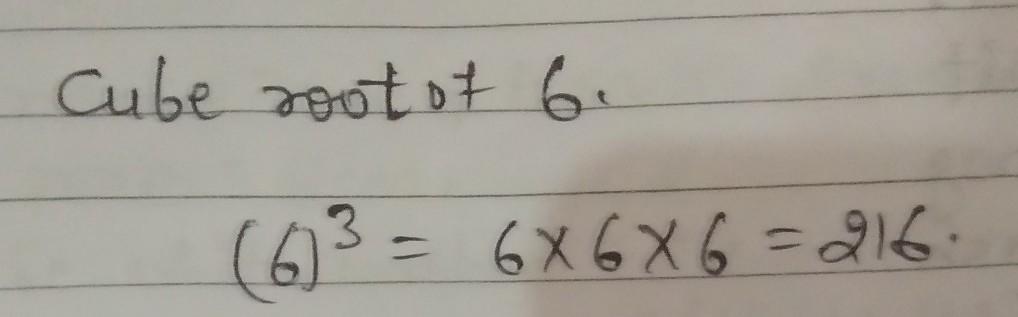 Cube root of 6.
(6)³ = 6×6×6 = 216.